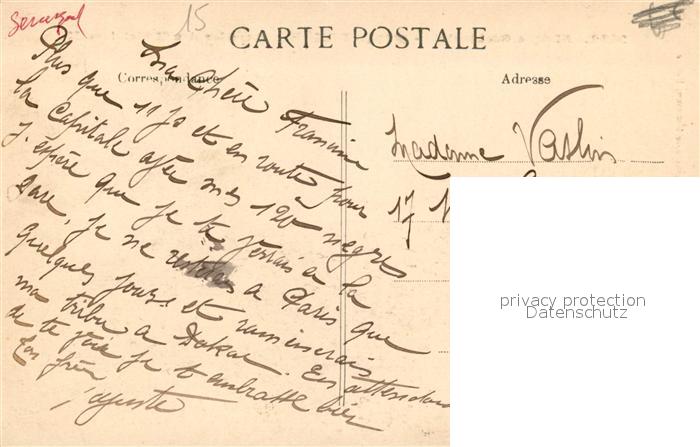 Senegal
15
CARTE POSTALE
Correspondance
Adresse
Ma Chère Francine
Plus que 11 js et en route pour
la Capitale avec mes 120 negres
J'espère que je te verrais a la
gare, je ne resterais a Paris que
quelques jours et ramenerais
ma tribu a Dakar. En attendant
de te voir je t'embrasse bien
Ton frère
Auguste
Madame Vaslin
17
privacy protection
Datenschutz